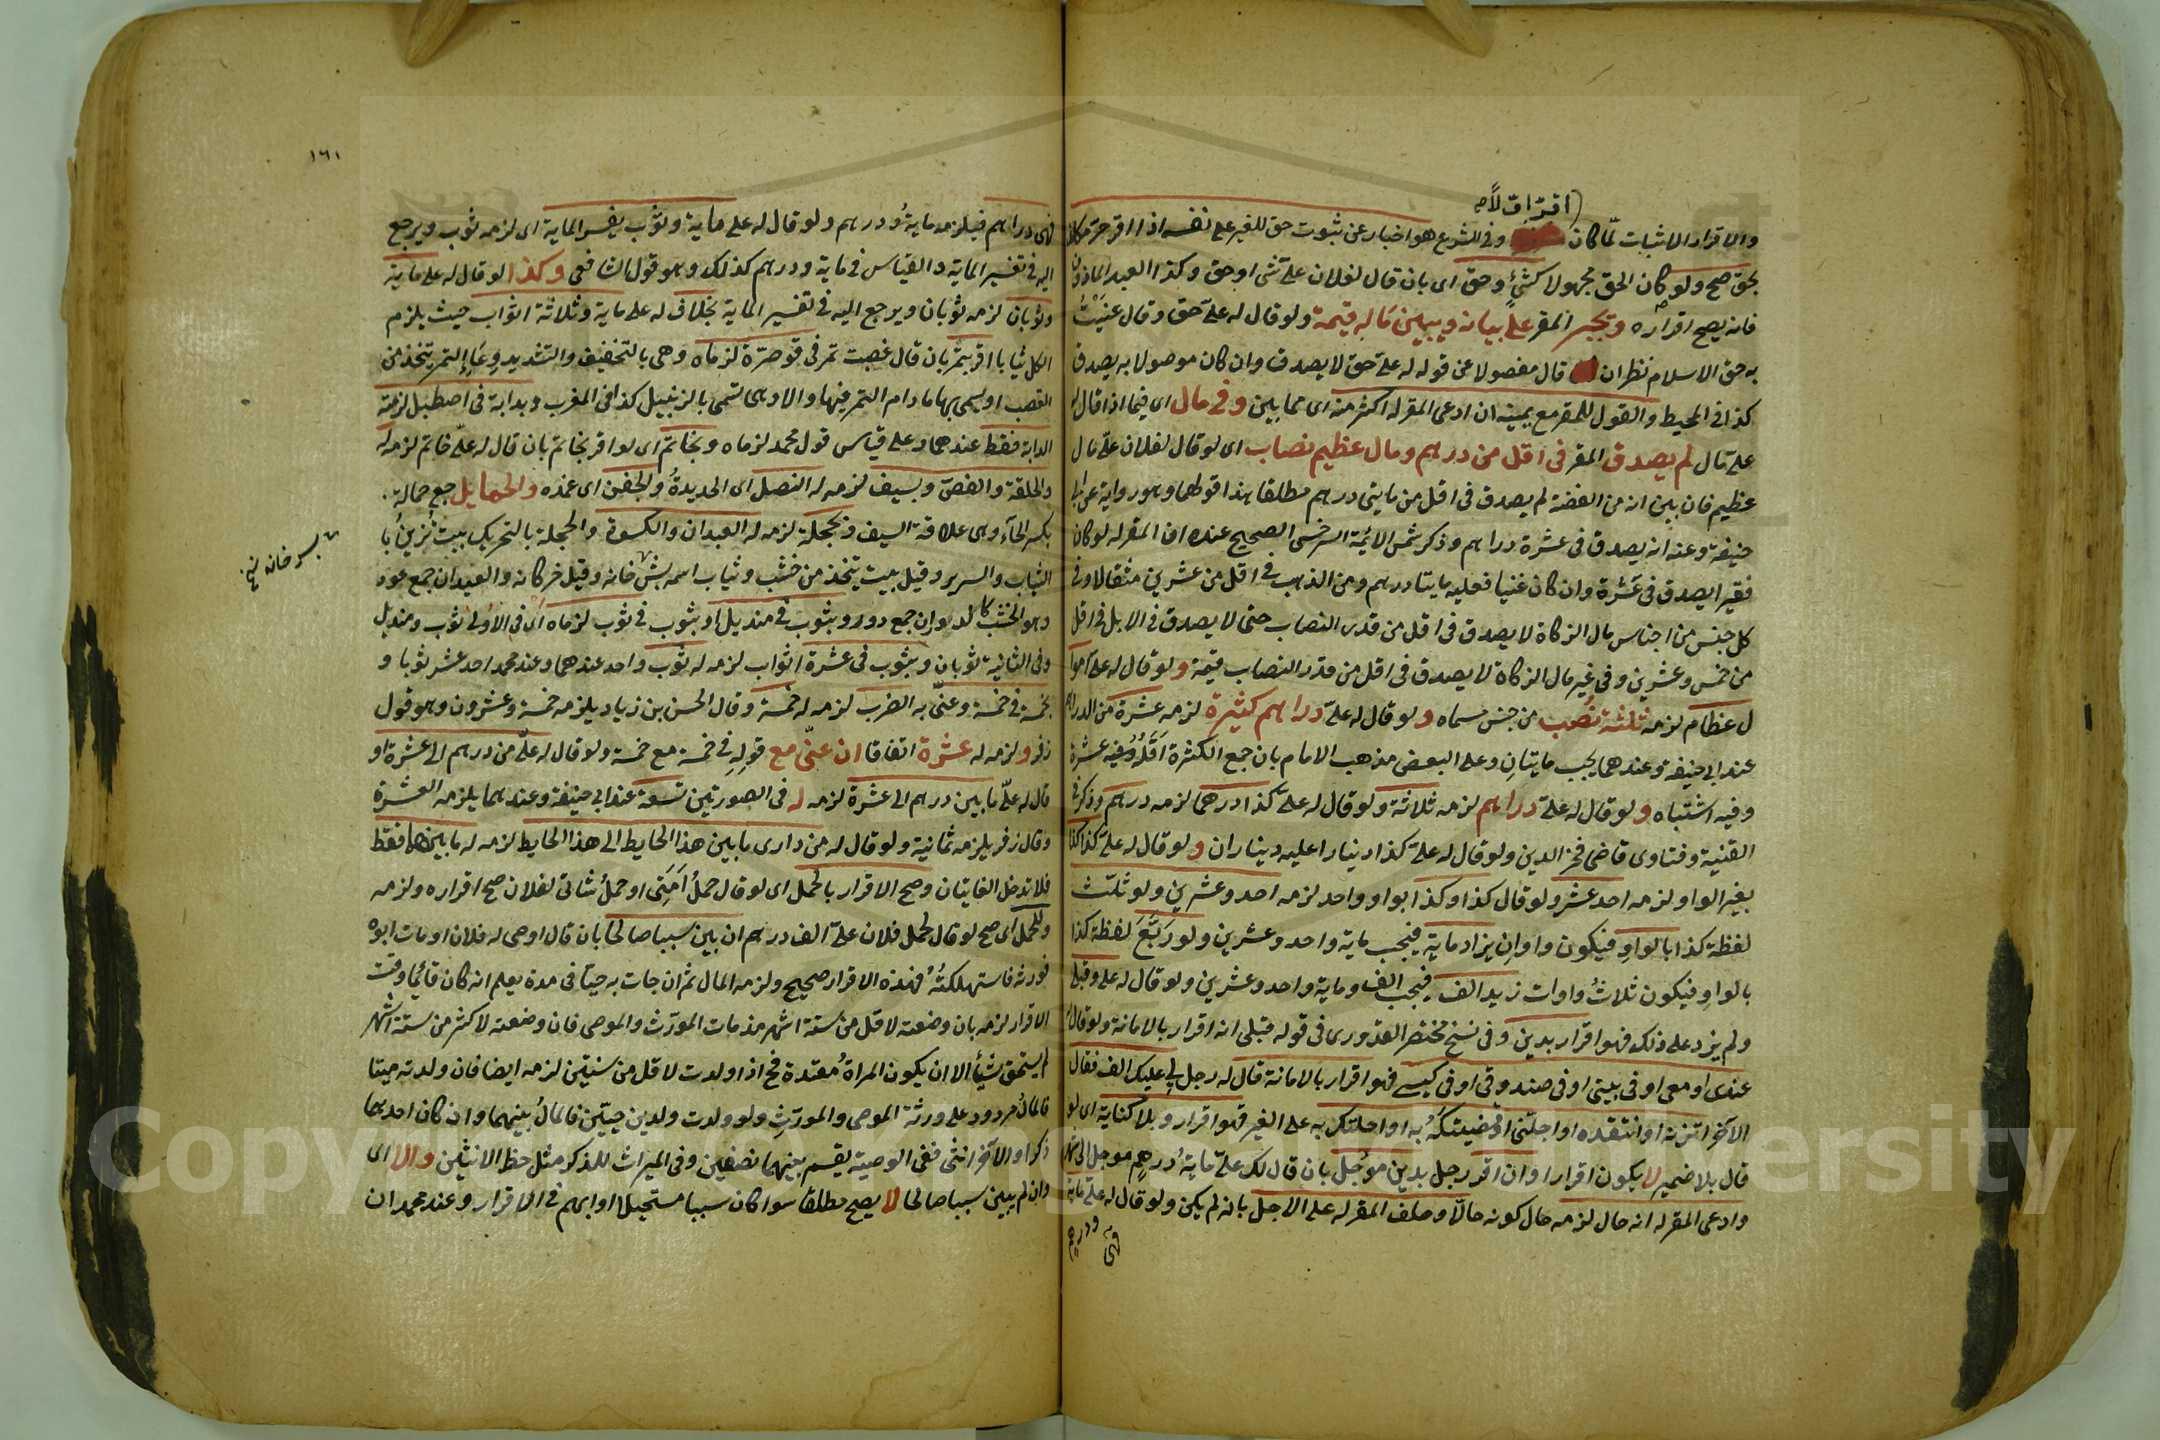 اقرارا لا صح
والاقرار الاثبات لما كان وفي الشرع هو اخبار عن ثبوت حق للغير على نفسه اذا اقر حر مكلف
بحق صح ولو كان الحق مجهولا كشئ وحق اى بان قال لفلان على شئ او حق وكذا العبد الماذون
فانه يصح اقراره ويجبر المقر على بيانه ويبين ما له قيمة ولو قال له على حق وقال عنيت
به حق الاسلام نظر ان قال مفصولا عن قوله له على حق لا يصدق وان كان موصولا به يصدق
كذا فى المحيط والقول للمقر مع يمينه ان ادعى المقر له اكثر منه اى مما بين وفى مال اى فيما اذا قال له
على مال لم يصدق المقر فى اقل من درهم ومال عظيم نصاب اى لو قال لفلان على مال
عظيم فان بين انه من الفضة لم يصدق فى اقل من مايتى درهم مطلقا هذا قولهما وهو رواية عن ابى
حنيفة وعنه انه يصدق فى عشرة دراهم وذكر شمس الائمة السرخسى الصحيح عنده ان المقر له لو كان
فقيرا يصدق فى عشرة وان كان غنيا فعليه مايتا درهم ومن الذهب فى اقل من عشرين مثقالا وفى
كل جنس من اجناس مال الزكاة لا يصدق فى اقل من قدر النصاب حتى لا يصدق فى الابل فى اقل
من خمس وعشرين وفى غير مال الزكاة لا يصدق فى اقل من قدر النصاب قيمة ولو قال له على اموا
ل عظام لزمه ثلثة نصب من جنس سماه ولو قال له على دراهم كثيرة لزمه عشرة من الدراهم
عند ابى حنيفة وعندهما يجب مايتان وعلى البعض مذهب الامام بان جمع الكثرة اقله عشرة
وفيه اشتباه ولو قال له على دراهم لزمه ثلاثة ولو قال له على كذا درهما لزمه درهم وذكر فى
القنية وفتاوى قاضى فخر الدين ولو قال له على كذا دينارا عليه ديناران ولو قال له على كذا كذا
بغير الواو لزمه احد عشر ولو قال كذا وكذا بواو واحد لزمه احد وعشرين ولو ثلث
لفظة كذا بالواو فيكون واوان يزاد ماية فيجب ماية واحد وعشرين ولو ربع لفظة كذا
بالواو فيكون ثلاث واوات زيد الف فيجب الف وماية واحد وعشرين ولو قال له على وقبلى
ولم يزد على ذلك فهو اقرار بدين وفى نسخ مختصر القدورى فى قوله قبلى انه اقرار بالامانة ولو قال له
عندى او معى او فى بيتى او فى صندوقى او فى كيسى فهو اقرار بالامانة قال له رجل لى عليك الف فقال
الآخر اتزنه او انتقده او اجلنى او قضيتكه به او احلتك به على الغير فهو اقرار وبلا كناية اى لو
قال بلا ضمير لا يكون اقرارا وان اقر رجل بدين مؤجل بان قال لك على ماية درهم مؤجل الى شهر
وادعى المقر له انه حال لزمه حال كونه حالا وحلف المقر له على الاجل بانه لم يكن ولو قال له على ماية
ودرهم فهى
١٦١
فهى دراهم فيلزمه ماية ودرهم ولو قال له على ماية وثوب يفسر الماية اى لزمه ثوب ويرجع
اليه فى تفسير الماية والقياس فى ماية ودرهم كذلك وهو قول الشافعى وكذا لو قال له على ماية
وثوبان لزمه ثوبان ويرجع اليه فى تفسير الماية بخلاف له على ماية وثلاثة اثواب حيث يلزم
الكل ثيابا اقر بتمر بان قال غصبت تمر فى قوصرة لزماه وهى بالتخفيف والتشديد وعاء التمر يتخذ من
القصب او يسمى بها مادام التمر فيها والا وهى تسمى بالزنبيل كذا فى المغرب وبدابة فى اصطبل لزمته
الدابة فقط عندهما وعلى قياس قول محمد لزماه وبخاتم اى لو اقر بخاتم بان قال له على خاتم لزمه له
والحلقة والفص وبسيف لزمه له النصل اى الحديدة والجفن اى غمده والحمايل جمع حمالة
بكسر الحاء وهى علاقة السيف وبحجلة لزمه له العيدان والكسوة والحجلة بالتحريك بيت يزين با
الثياب والسرير وقيل بيت يتخذ من خشب وثياب اسمه بش خانه وقيل خركانه والعيدان جمع عود
وهو الخشب كالديدان جمع دود وبثوب فى منديل او بثوب فى ثوب لزماه اى فى الاولى ثوب ومنديل
وفى الثانية ثوبان وبثوب فى عشرة اثواب لزمه له ثوب واحد عندهما وعند محمد احد عشر ثوبا و
بخمسة فى خمسة وعنى به الضرب لزمه له خمسة وقال الحسن بن زياد يلزمه خمسة وعشرون وهو قول
زفر ولزمه له عشرة اتفاقا ان عنى مع قوله فى خمسة مع خمسة ولو قال له على من درهم الى عشرة او
قال له على ما بين درهم الى عشرة لزمه له فى الصورتين تسعة عند ابى حنيفة وعندهما يلزمه العشرة
وقال زفر يلزمه ثمانية ولو قال له من دارى ما بين هذا الحايط الى هذا الحايط لزمه له ما بينهما فقط
فلا تدخل الغايتان وصح الاقرار بالحمل اى لو قال حمل امتى او حمل شاتى لفلان صح اقراره ولزمه
وللحمل اى صح لو قال لحمل فلان على الف درهم ان بين سببا صالحا بان قال اوصى له فلان او مات ابوه
فورثه فاستهلكته فهذه الاقرار صحيح ولزمه المال ثم ان جات به حيا فى مدة يعلم انه كان قائما وقت
الاقرار لزمه بان وضعته لاقل من ستة اشهر مذ مات المورث والموصى فان وضعته لاكثر من ستة اشهر
لم يستحق شيأ الا ان يكون المراة معتدة فح اذا ولدت لاقل من سنتين لزمه ايضا فان ولدته ميتا
فالمال مردود على ورثة الموصى والمورث ولو ولدت ولدين حيين فالمال بينهما وان كان احدهما
ذكرا والآخر انثى ففى الوصية يقسم بينهما نصفين وفى الميراث للذكر مثل حظ الانثيين والا اى
وان لم يبين سببا صالحا لا يصح مطلقا سوا كان سببا مستحيلا او ابهم فى الاقرار وعند محمد ان
خانه نخ
Copyright © King Saud University